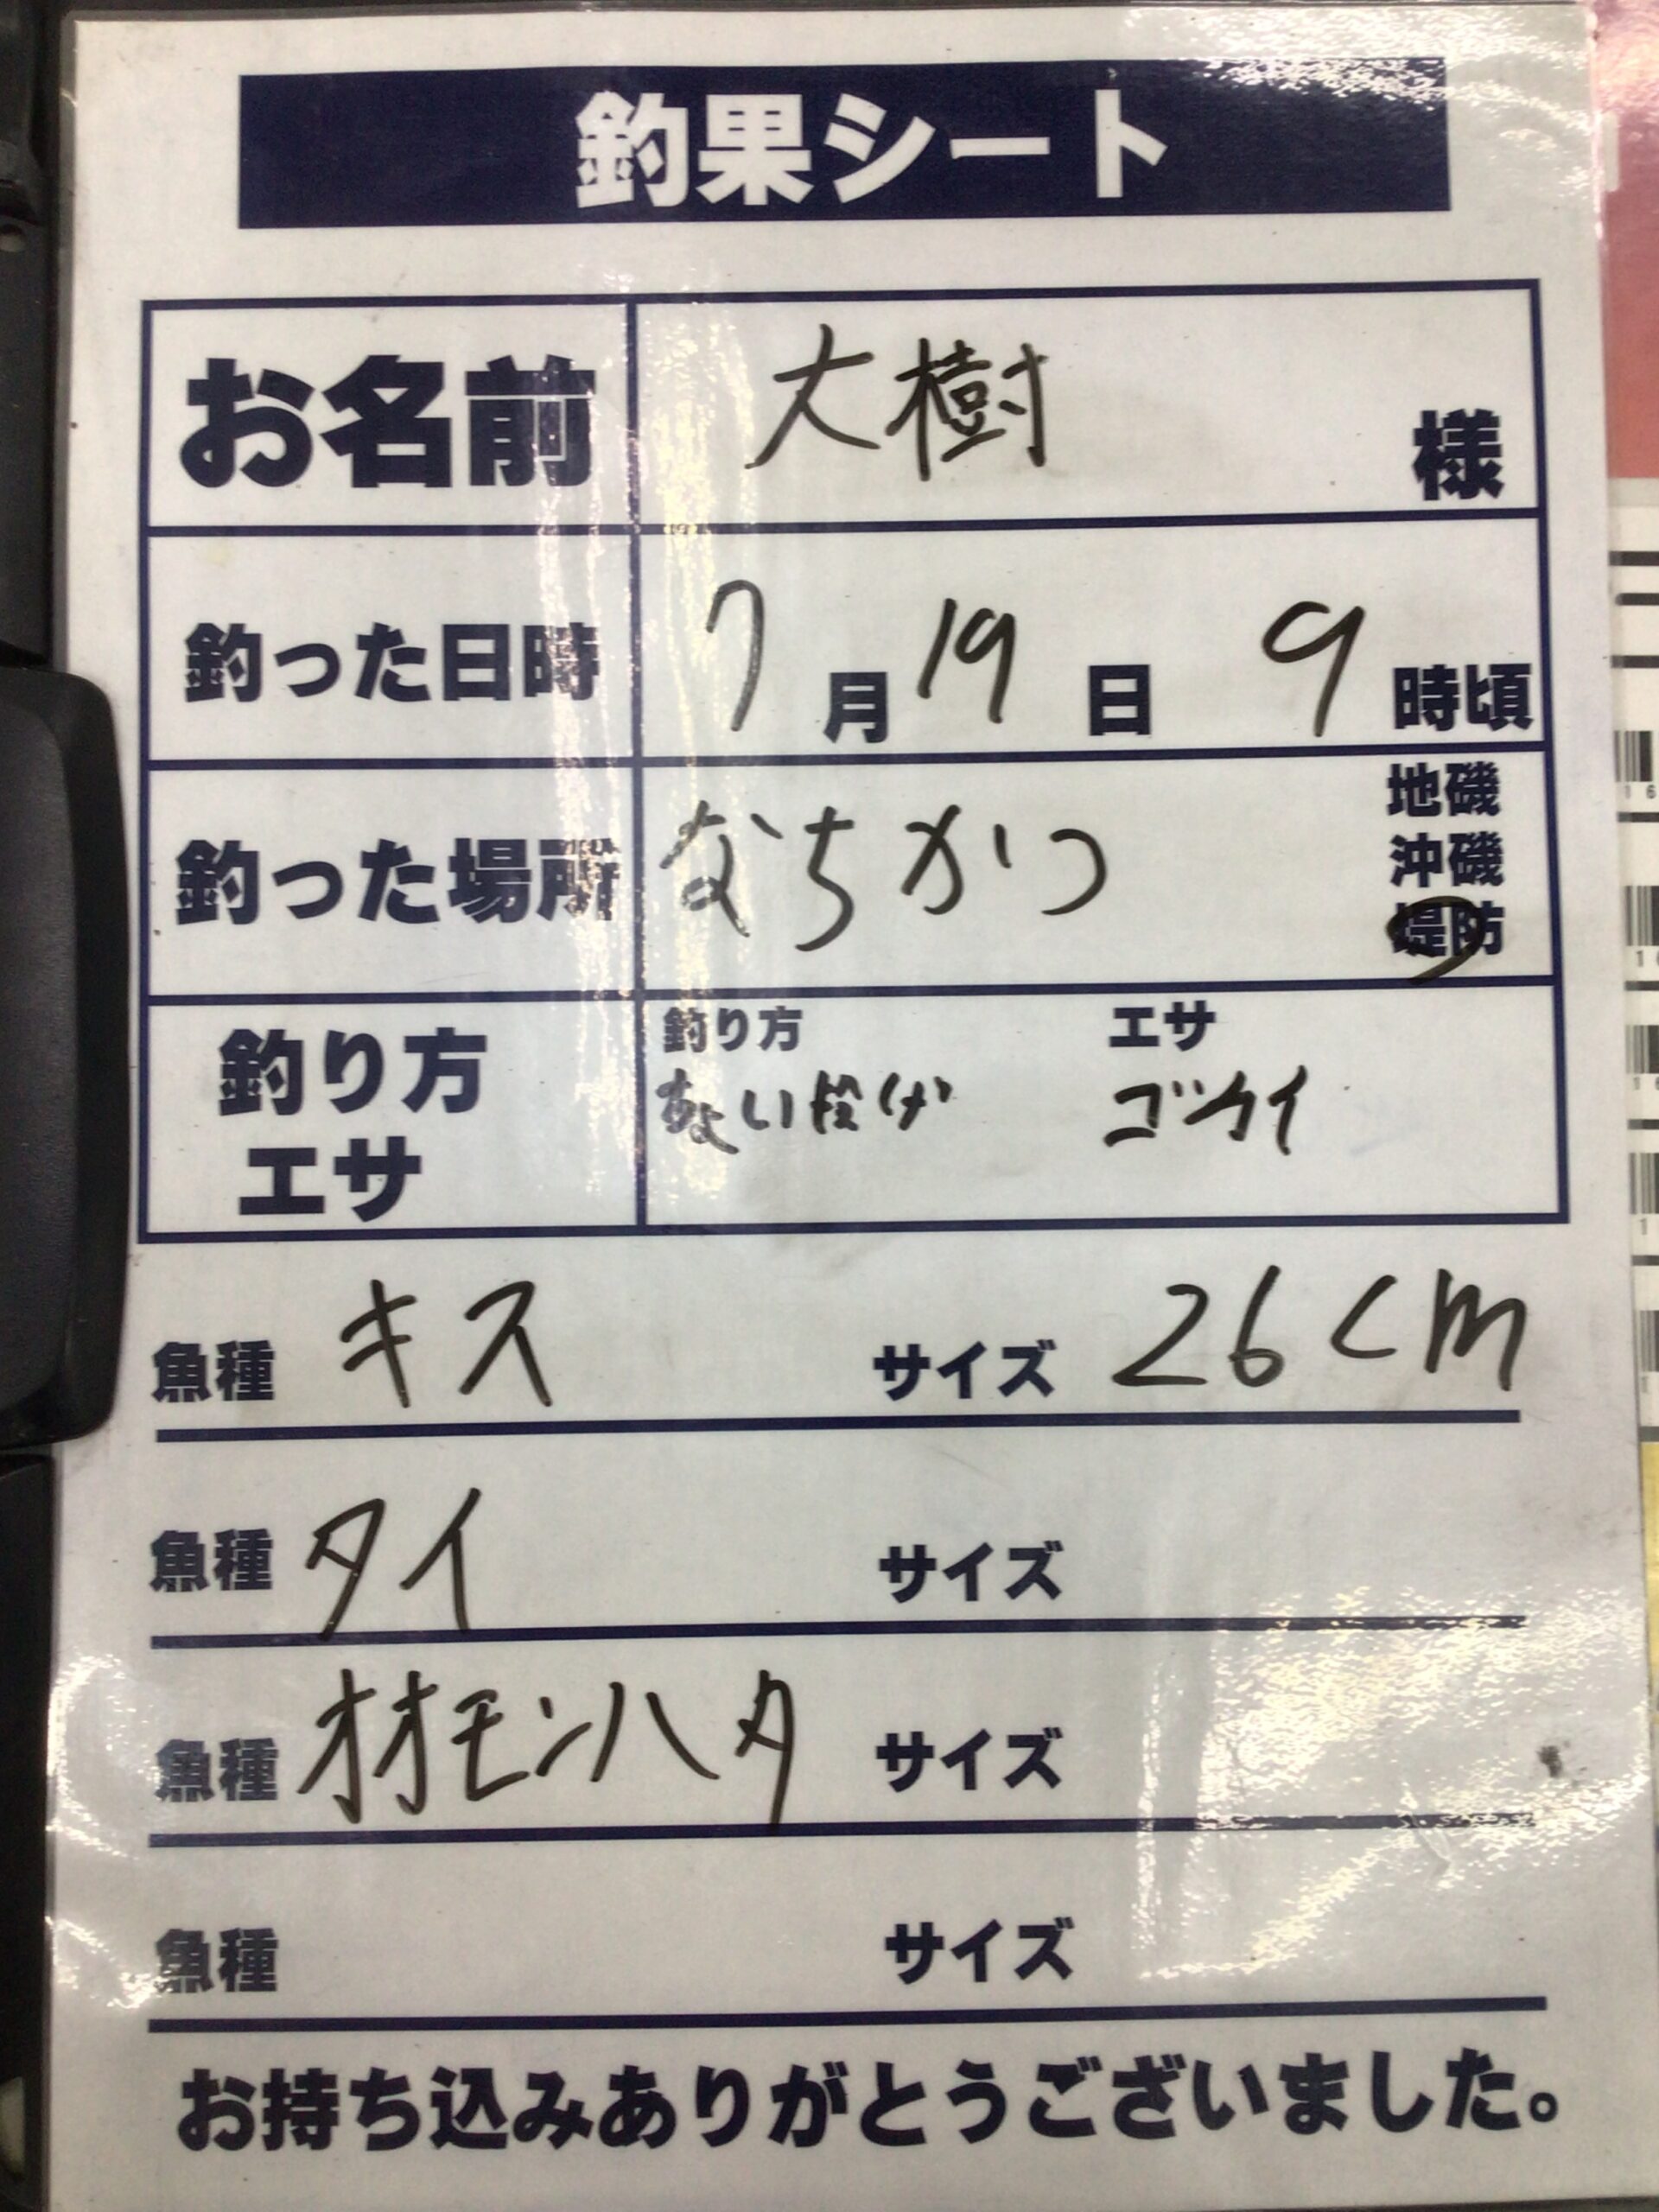 釣果シート
お名前 大樹 様
釣った日時 7月19日 9時頃
釣った場所 なちかつ 地磯
沖磯
堤防
釣り方 エサ
釣り方 エサ
ちょい投げ ゴカイ
魚種 キス サイズ 26cm
魚種 タイ サイズ
魚種 オオモンハタ サイズ
魚種 サイズ
お持ち込みありがとうございました。